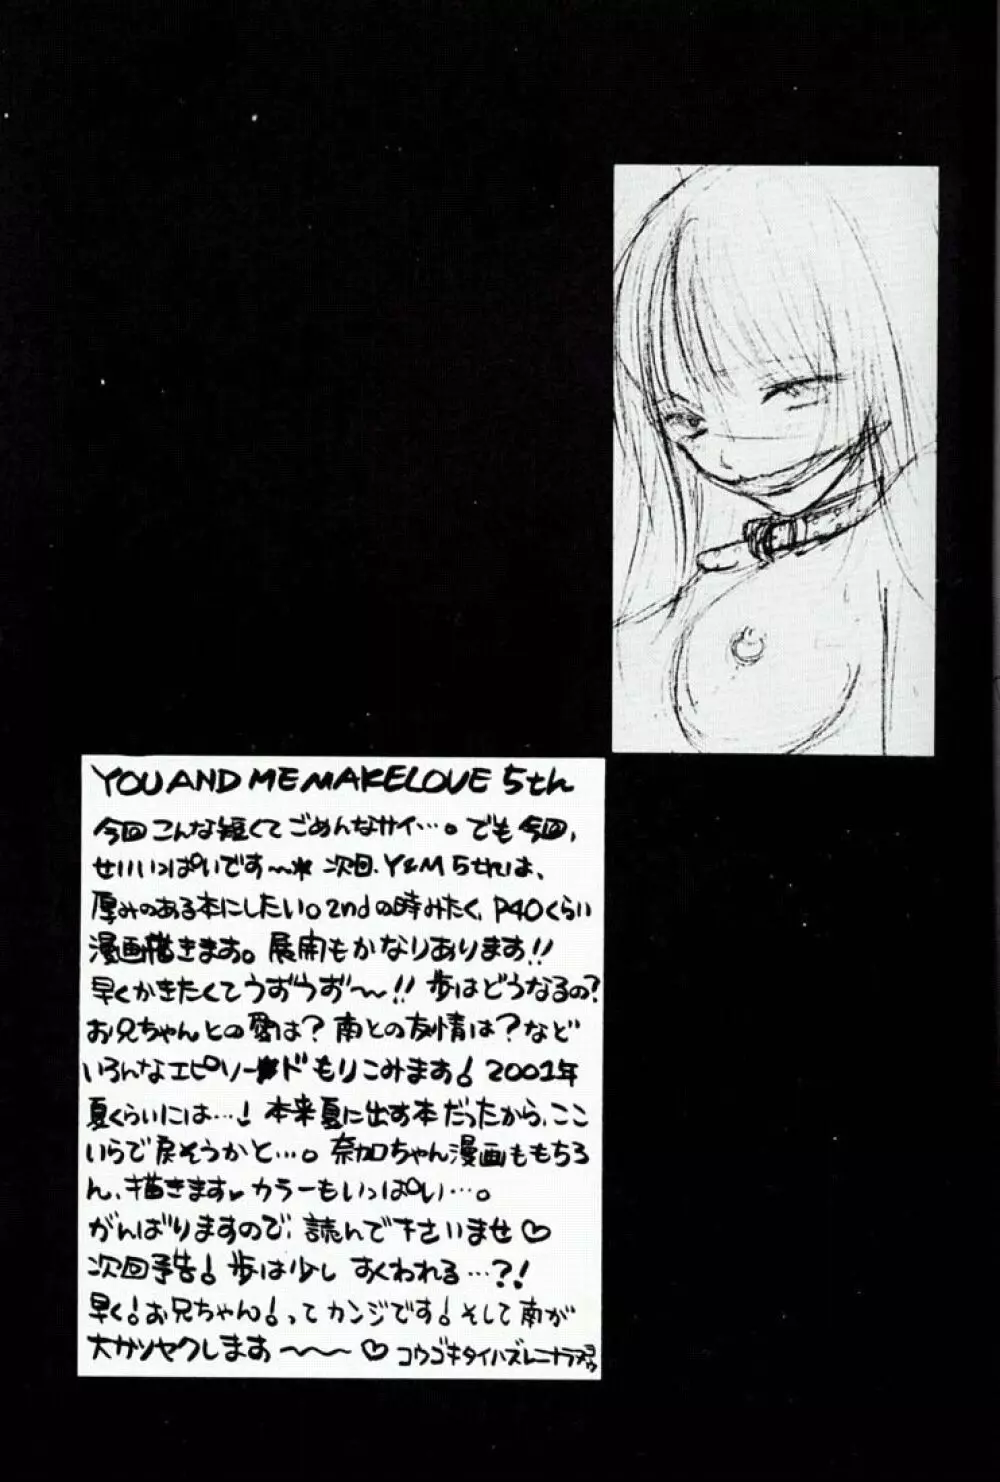 YOU AND ME MAKE LOVE 5th
今回こんな短くてごめんなサイ…。でも今回、
せいいっぱいです〜* 次回、Y&M 5thは、
厚みのある本にしたい。2ndの時みたく、P40くらい
漫画描きます。展開もかなりあります!!
早くかきたくてうずうず〜!! 歩はどうなるの?
お兄ちゃんとの愛は? 南との友情は? など
いろんなエピソードもりこみます! 2001年
夏くらいには…! 本来夏に出す本だったから、ここ
いらで戻そうかと…。奈加ちゃん漫画ももちろ
ん、描きます♥ カラーもいっぱい…。
がんばりますので、読んで下さいませ♡
次回予告! 歩は少しすくわれる…?!
早く!お兄ちゃん!ってカンジです! そして南が
大カツヤクします〜〜♡ コウゴキタイハズレ